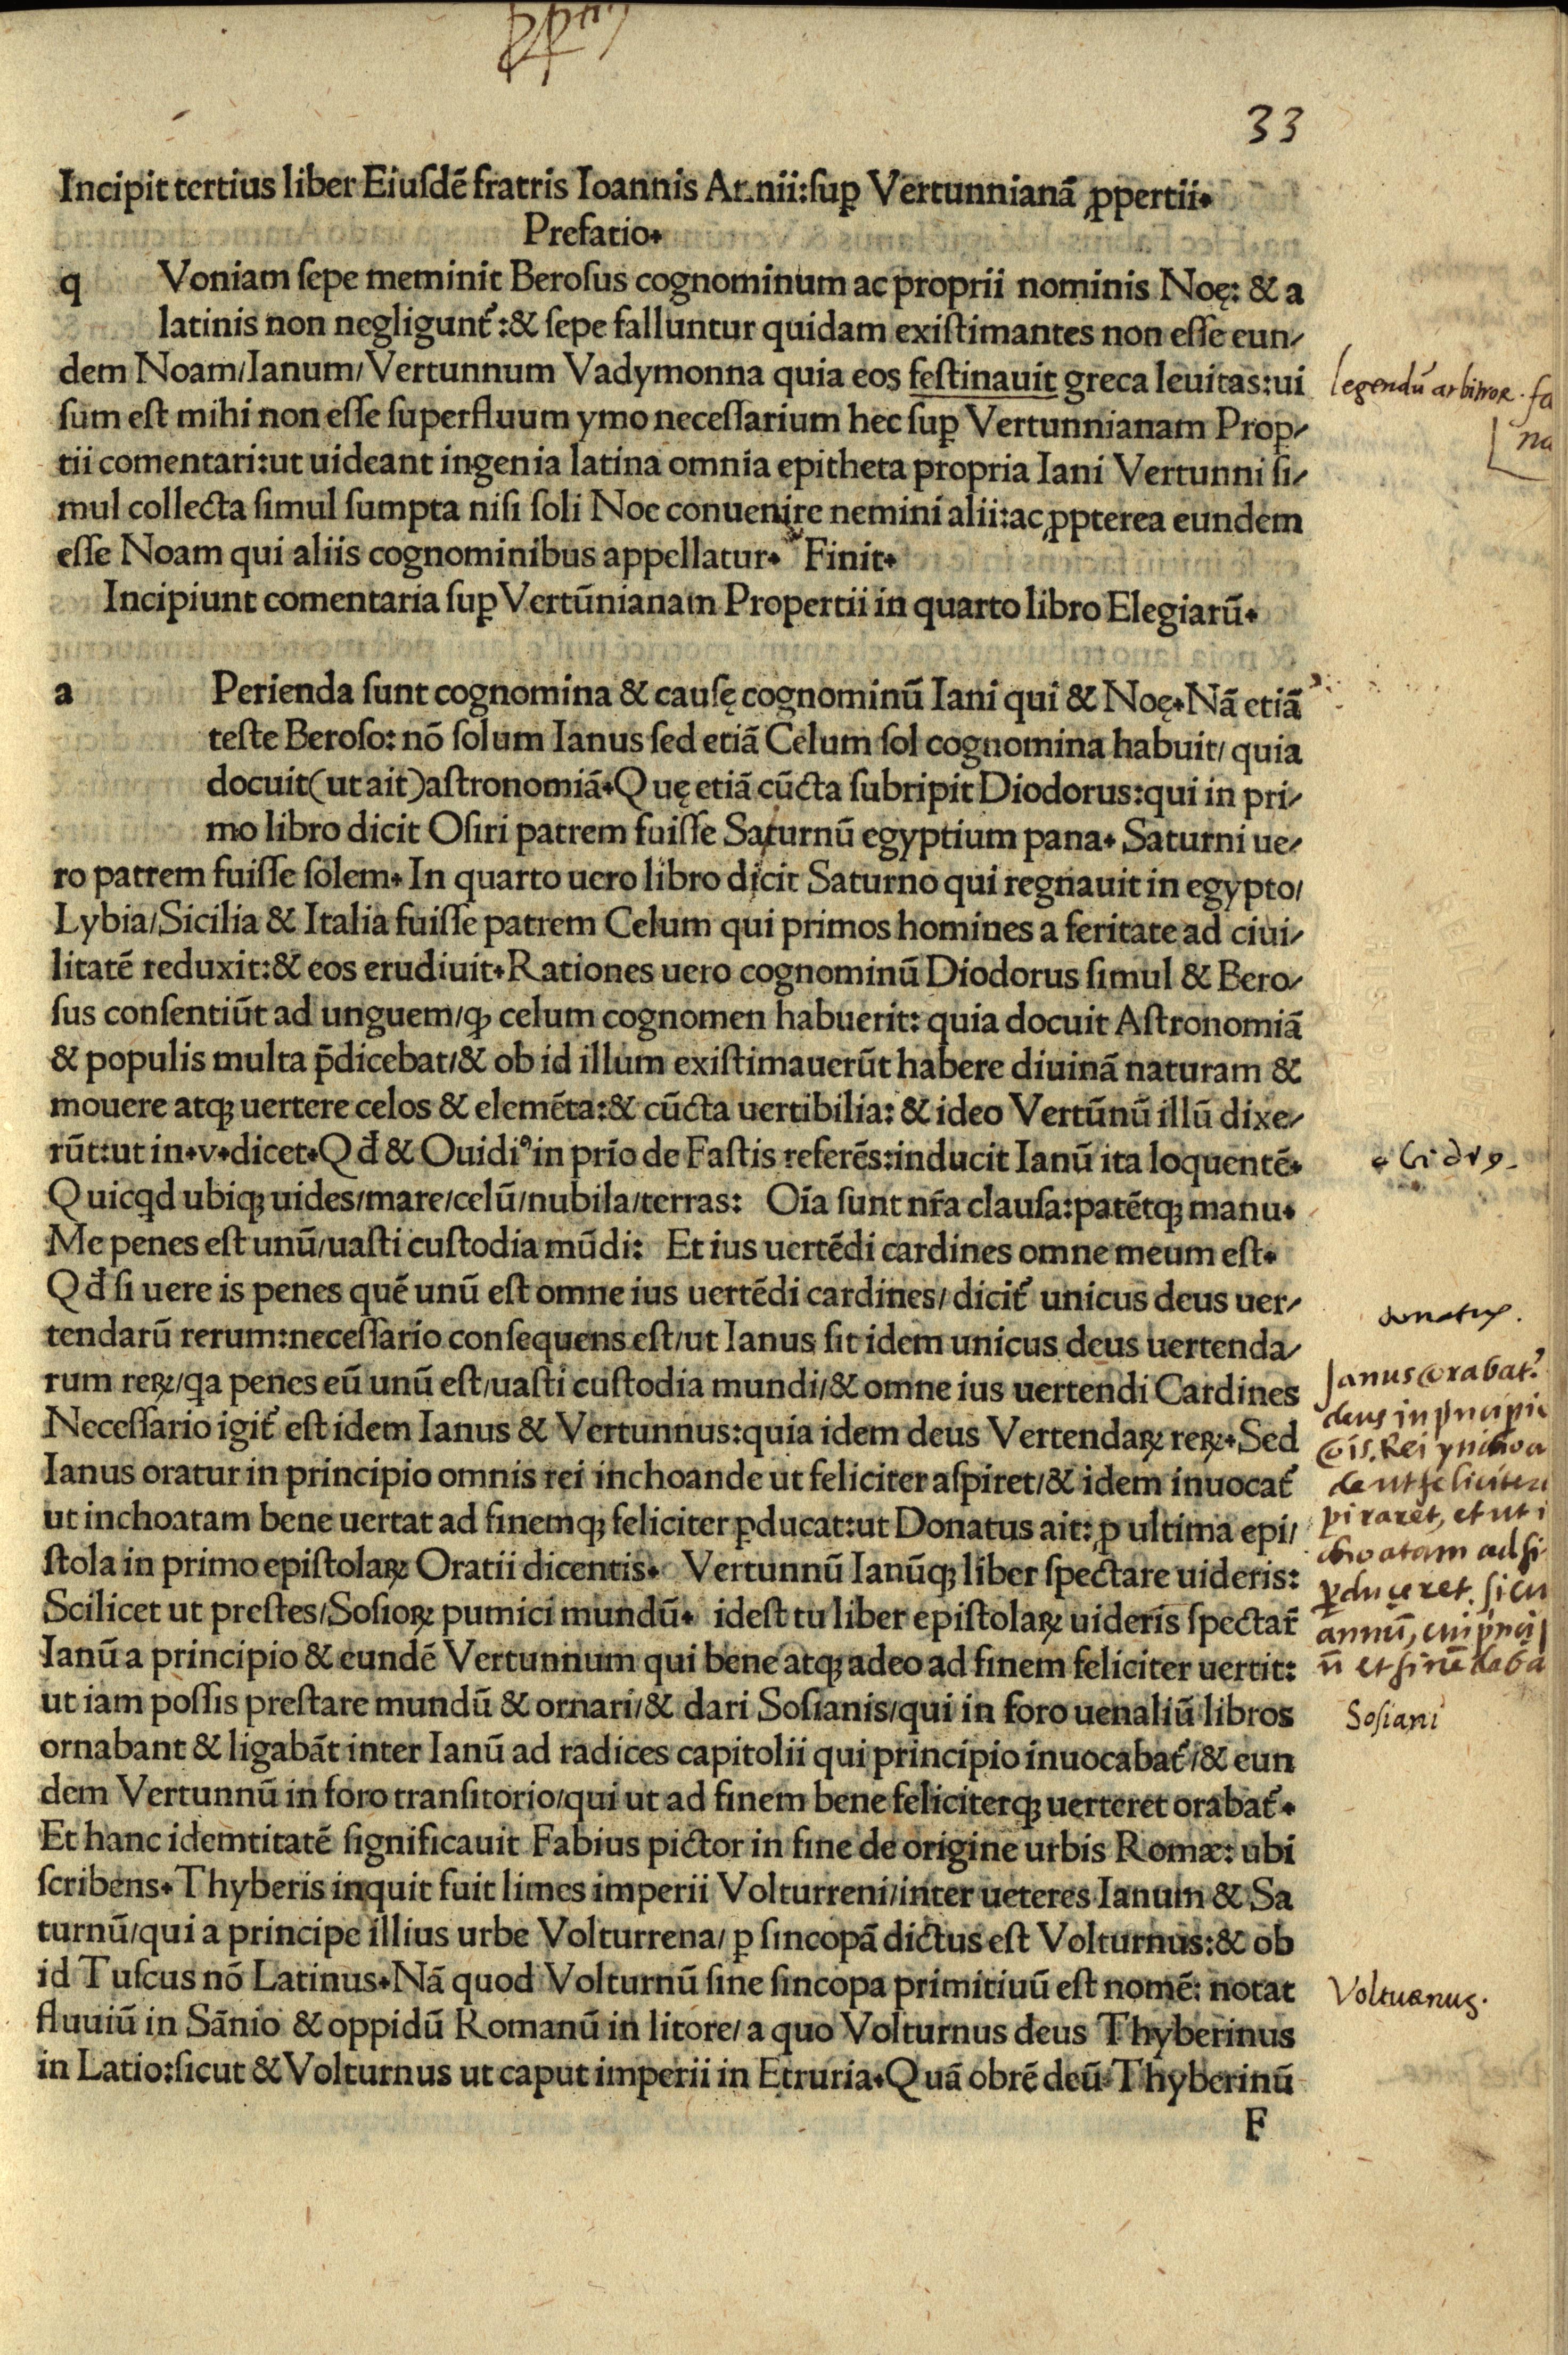 33
Incipit tertius liber Eiuſdē fratris Ioannis Annii:ſuꝑ Vertunnianā ꝓpertii.
Prefatio.
q Voniam ſepe meminit Beroſus cognominum ac proprii nominis Noę: & a
latinis non negligunt᷑:& ſepe falluntur quidam exiſtimantes non eſſe eun/
dem Noam/Ianum/Vertunnum Vadymonna quia eos feſtinauit greca leuitas:ui
ſum eſt mihi non eſſe ſuperfluum ymo neceſſarium hec ſuꝑ Vertunnianam Proꝑ/
tii comentari:ut uideant ingenia latina omnia epitheta propria Iani Vertunni ſi/
mul collecta ſimul ſumpta niſi ſoli Noe conuenire nemini alii:ac ꝓpterea eundem
eſſe Noam qui aliis cognominibus appellatur. Finit.
Incipiunt comentaria ſuꝑ Vertūnianam Propertii in quarto libro Elegiarū.
a Perienda ſunt cognomina & cauſę cognominū Iani qui & Noę.Nā etiā
teſte Beroſo: nō ſolum Ianus ſed etiā Celum ſol cognomina habuit/ quia
docuit(ut ait)aſtronomiā.Quę etiā cūcta ſubripit Diodorus:qui in pri/
mo libro dicit Oſiri patrem fuiſſe Saturnū egyptium pana. Saturni ue/
ro patrem fuiſſe ſolem. In quarto uero libro dicit Saturno qui regnauit in egypto/
Lybia/Sicilia & Italia fuiſſe patrem Celum qui primos homines a feritate ad ciui/
litatē reduxit:& eos erudiuit.Rationes uero cognominū Diodorus ſimul & Bero/
ſus conſentiūt ad unguem/ꝙ celum cognomen habuerit: quia docuit Aſtronomiā
& populis multa p̄dicebat/& ob id illum exiſtimauerūt habere diuinā naturam &
mouere atqꝫ uertere celos & elemēta:& cūcta uertibilia: & ideo Vertūnū illū dixe/
rūt:ut in.v.dicet.Qđ & Ouidiꝰ in prīo de Faſtis referēs:inducit Ianū ita loquentē.
Quicꝗd ubiqꝫ uides/mare/celū/nubila/terras: Oīa ſunt nr̄a clauſa:patētqꝫ manu.
Me penes eſt unū/uaſti cuſtodia mūdi: Et ius uertēdi cardines omne meum eſt.
Qđ ſi uere is penes quē unū eſt omne ius uertēdi cardines/ dicit᷑ unicus deus uer/
tendarū rerum:neceſſario conſequens eſt/ut Ianus ſit idem unicus deus uertenda/
rum reꝝ/ꝗa penes eū unū eſt/uaſti cuſtodia mundi/& omne ius uertendi Cardines
Neceſſario igit᷑ eſt idem Ianus & Vertunnus:quia idem deus Vertendaꝝ reꝝ.Sed
Ianus oratur in principio omnis rei inchoande ut feliciter aſpiret/& idem inuocat᷑
ut inchoatam bene uertat ad finemqꝫ feliciter ꝑducat:ut Donatus ait: ꝓ ultima epi/
ſtola in primo epiſtolaꝝ Oratii dicentis. Vertunnū Ianūqꝫ liber ſpectare uideris:
Scilicet ut preſtes/Soſioꝝ pumici mundū. ideſt tu liber epiſtolaꝝ uideris ſpectar̄
Ianū a principio & eundē Vertunnum qui bene atqꝫ adeo ad finem feliciter uertit:
ut iam poſſis preſtare mundū & ornari/& dari Soſianis/qui in foro uenaliū libros
ornabant & ligabāt inter Ianū ad radices capitolii qui principio inuocabat᷑/& eun
dem Vertunnū in foro tranſitorio/qui ut ad finem bene feliciterqꝫ uerteret orabat᷑.
Et hanc idemtitatē ſignificauit Fabius pictor in fine de origine urbis Romæ: ubi
ſcribens.Thyberis inquit fuit limes imperii Volturreni/inter ueteres Ianum & Sa
turnū/qui a principe illius urbe Volturrena/ ꝑ ſincopā dictus eſt Volturnus:& ob
id Tuſcus nō Latinus.Nā quod Volturnū ſine ſincopa primitiuū eſt nomē: notat
fluuiū in Sānio & oppidū Romanū in litore/ a quo Volturnus deus Thyberinus
in Latio:ſicut & Volturnus ut caput imperii in Etruria.Quā obrē deū Thyberinū
F
legendū arbitror. fa
na
ouidiꝰ
donatus.
Ianus orabat᷑
deus in principio
ois. Rei inchoa
de ut feliciter
piraret, et ut i
choatam ad fi
ꝑduceret. sicu
annū, cui
et finē daba
Sosiani
Volturnus.